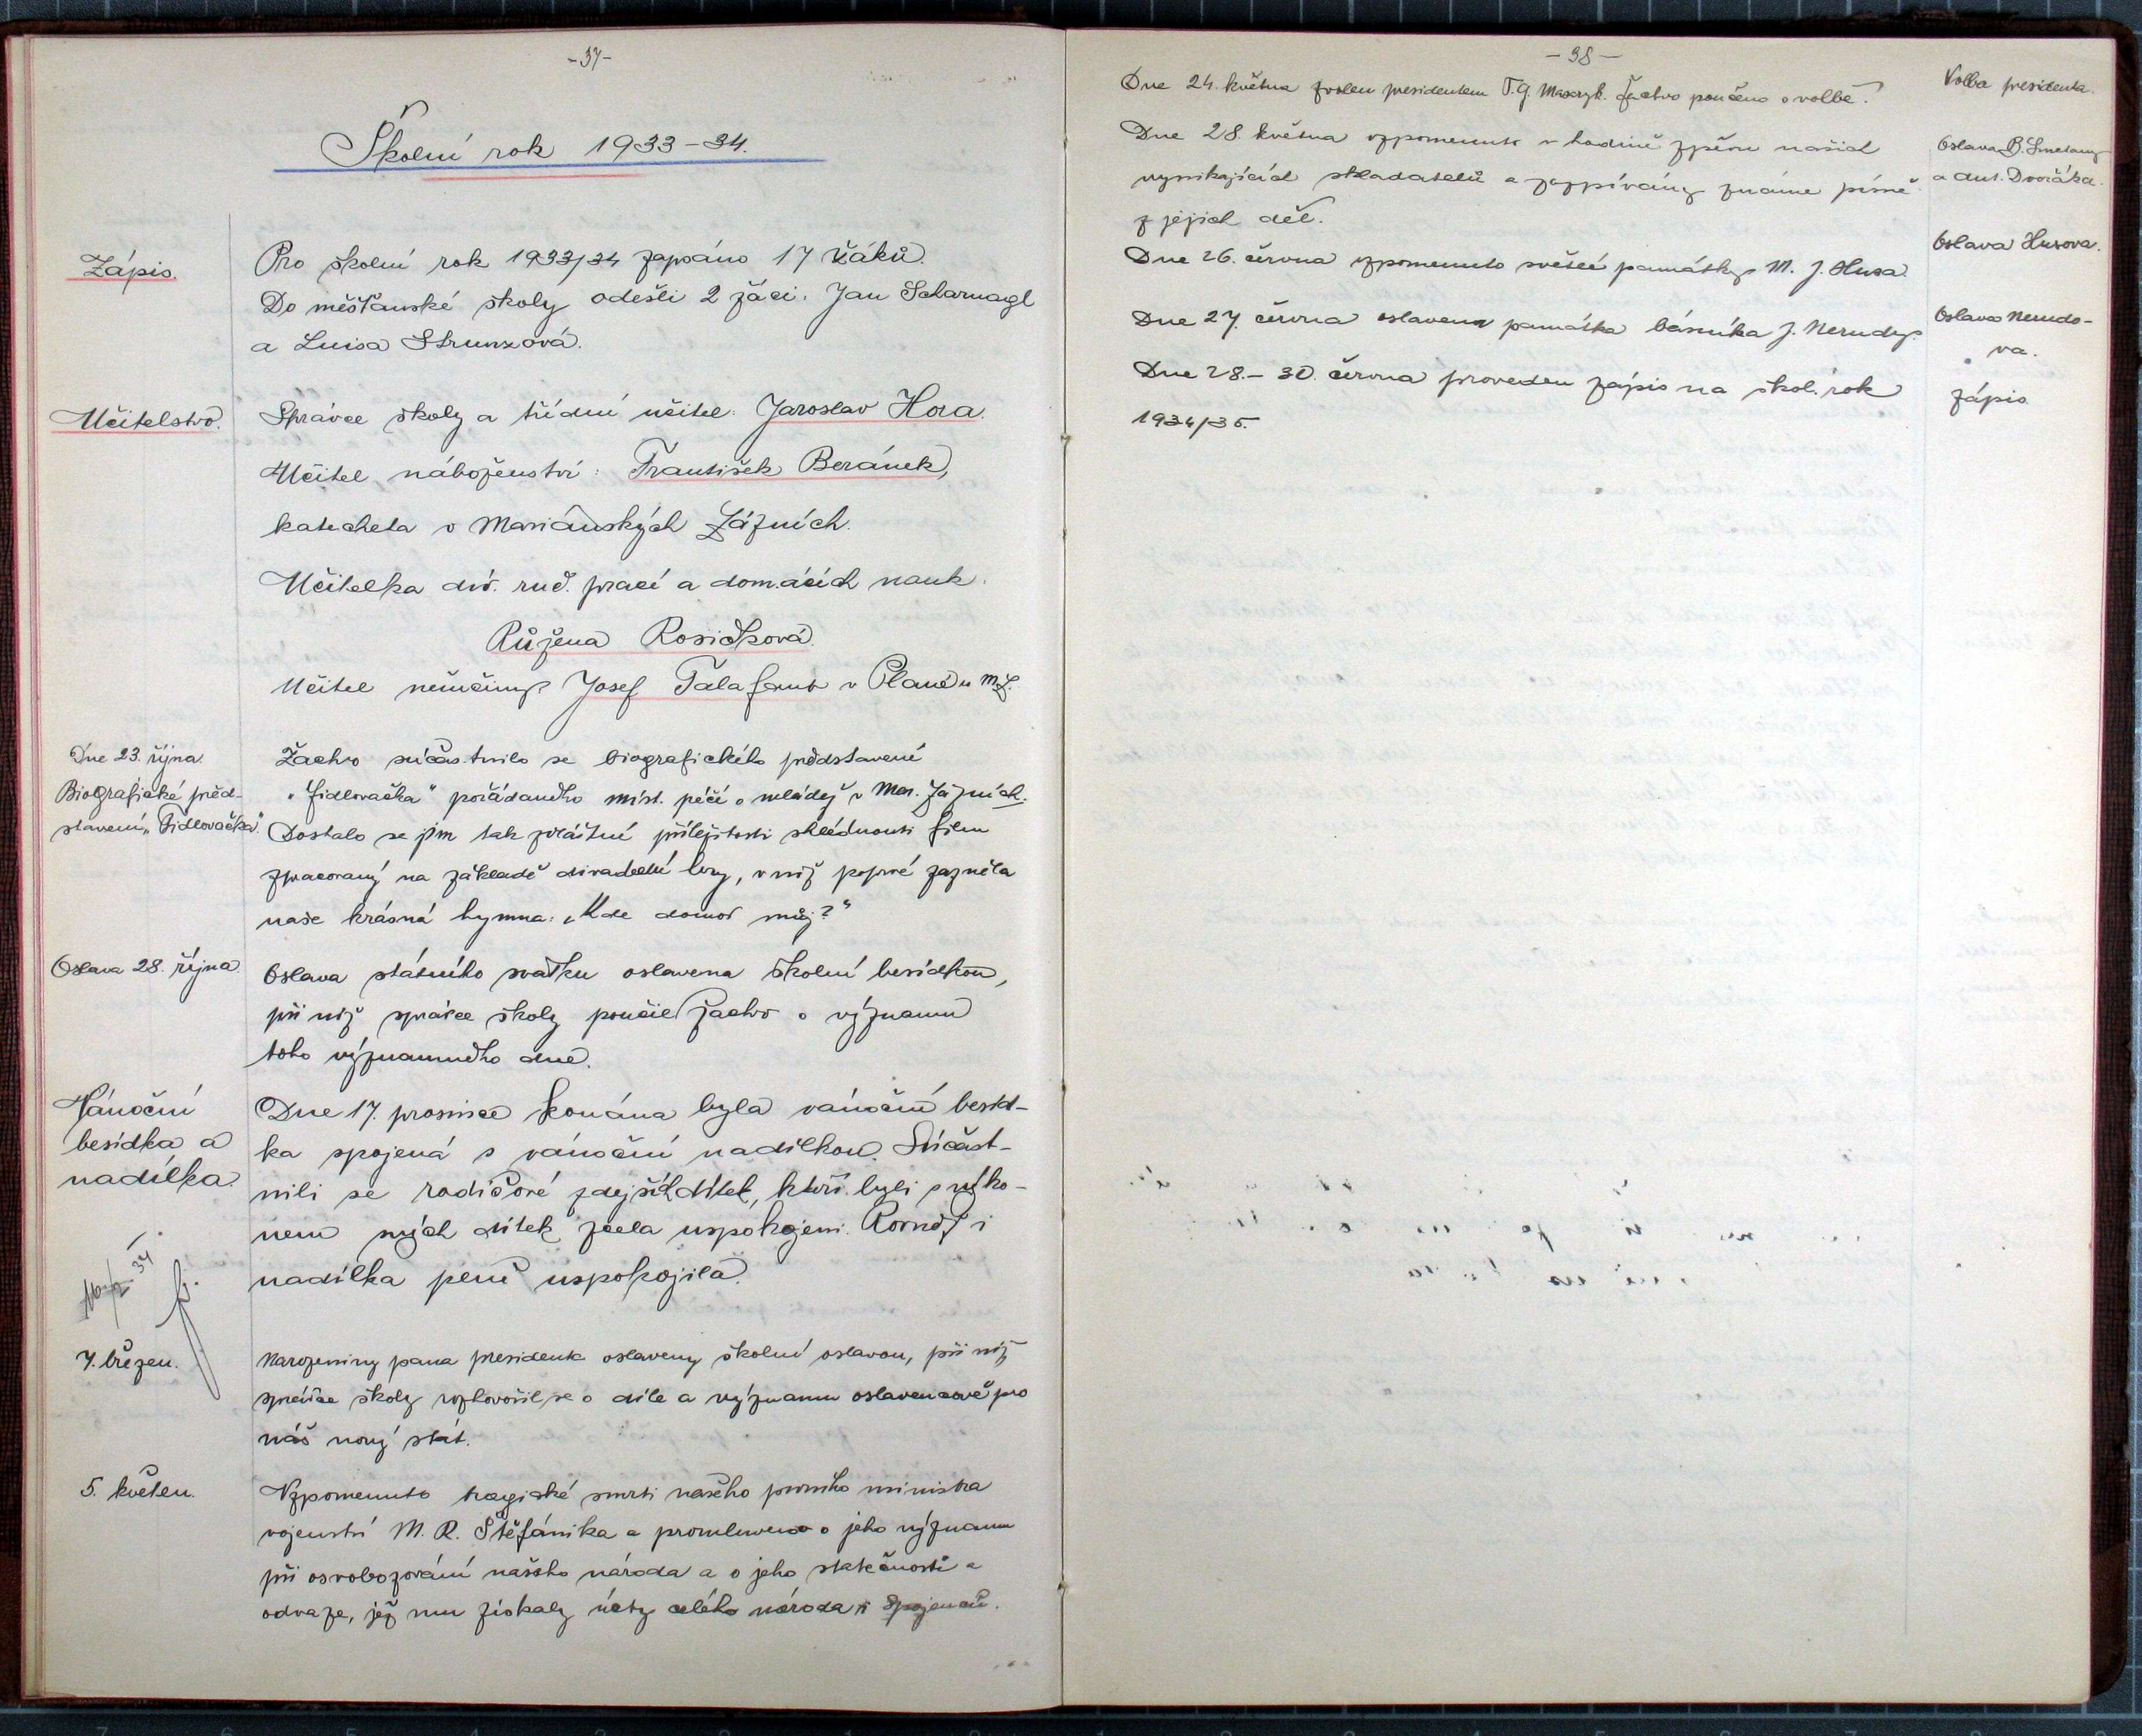 -37-
Školní rok 1933-34.
Zápis.
Pro školní rok 1933/34 zapsáno 17 žáků.
Do měšťanské školy odešli 2 žáci: Jan Scharnagl
a Luisa Strunzová.
Učitelstvo.
Správce školy a třídní učitel: Jaroslav Hora.
Učitel náboženství: František Beránek,
katecheta v Mariánských Lázních.
Učitelka dív. ruč. prací a domácích nauk.
Růžena Rosičková.
Učitel němčiny Josef Talafant v Plané u M.L.
Dne 23. října.
Biografické před-
stavení „Fidlovačka".
Žactvo súčastnilo se biografického představení
„Fidlovačka" pořádaného míst. péčí o mládež v Mar. Lázních.
Dostalo se jim tak zvláštní příležitosti shlédnouti film
zpracovaný na základě divadelní hry, v níž poprvé zazněla
naše krásná hymna: „Kde domov můj?"
Oslava 28. října.
Oslava státního svátku oslavena školní besídkou,
při níž správce školy poučil žactvo o významu
toho významného dne.
Vánoční
besídka a
nadílka.
Dne 17. prosince konána byla vánoční besíd-
ka spojená s vánoční nadílkou. Súčast-
nili se rodičové zdejších dítek, kteří byli s výko-
nem svých dítek zcela uspokojeni. Rovněž i
nadílka plně uspokojila.
34
7. březen.
Narozeniny pana presidenta oslaveny školní oslavou, při níž
správce školy rozhovořil se o díle a významu oslavencově pro
náš nový stát.
5. květen.
Vzpomenuto tragické smrti našeho prvního ministra
vojenství M. R. Štěfánika a promluveno o jeho významu
při osvobozování našeho národa a o jeho statečnosti a
odvaze, jež mu získaly úcty celého národa i spojenců.
-38-
Dne 24. května zvolen presidentem T. G. Masaryk. Žactvo poučeno o volbě.
Volba presidenta.
Dne 28. května vzpomenuto v hodině zpěvu našich
vynikajících skladatelů a zazpívány známé písně
z jejich děl.
Oslava B. Smetany
a Ant. Dvořáka.
Dne 26. června vzpomenuto světlé památky M. J. Husa.
Oslava Husova.
Dne 27. června oslavena památka básníka J. Nerudy.
Oslava Nerudo-
va.
Dne 28.-30. června proveden zápis na škol. rok
1934/35.
zápis.